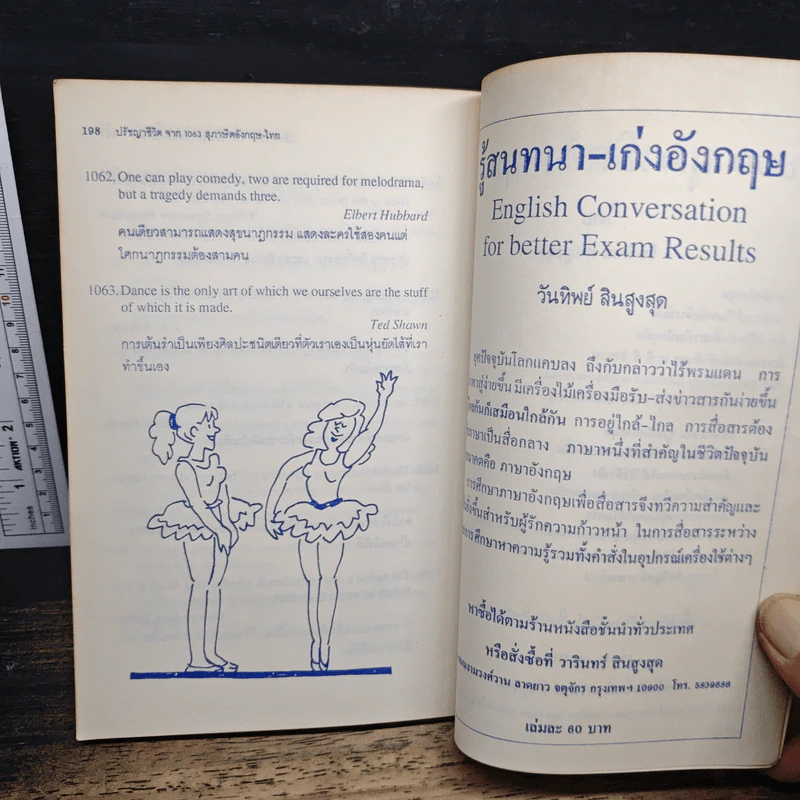 198 ปรัชญาชีวิต จาก 1063 สุภาษิตอังกฤษ-ไทย
1062. One can play comedy, two are required for melodrama,
but a tragedy demands three.
Elbert Hubbard
คนเดียวสามารถแสดงสุขนาฏกรรม แสดงละครใช้สองคนแต่
โศกนาฏกรรมต้องสามคน
1063. Dance is the only art of which we ourselves are the stuff
of which it is made.
Ted Shawn
การเต้นรำเป็นเพียงศิลปะชนิดเดียวที่ตัวเราเองเป็นหุ่นยัดไส้ที่เรา
ทำขึ้นเอง
รู้สนทนา-เก่งอังกฤษ
English Conversation
for better Exam Results
วันทิพย์ สินสูงสุด
ยุคปัจจุบันโลกแคบลง ถึงกับกล่าวว่าไร้พรมแดน การ
ง่ายขึ้น มีเครื่องไม้เครื่องมือรับ-ส่งข่าวสารกันง่ายขึ้น
ก็เสมือนใกล้กัน การอยู่ใกล้-ไกล การสื่อสารต้อง
ภาษาเป็นสื่อกลาง ภาษาหนึ่งที่สำคัญในชีวิตปัจจุบัน
คือ ภาษาอังกฤษ
การศึกษาภาษาอังกฤษเพื่อสื่อสารจึงทวีความสำคัญและ
ขึ้นสำหรับผู้รักความก้าวหน้า ในการสื่อสารระหว่าง
การศึกษาหาความรู้รวมทั้งคำสั่งในอุปกรณ์เครื่องใช้ต่างๆ
หาซื้อได้ตามร้านหนังสือชั้นนำทั่วประเทศ
หรือสั่งซื้อที่ วารินทร์ สินสูงสุด
งามวงศ์วาน ลาดยาว จตุจักร กรุงเทพฯ 10900 โทร. 5809686
เล่มละ 60 บาท
inches 1 ARTRON 2
9 10 11